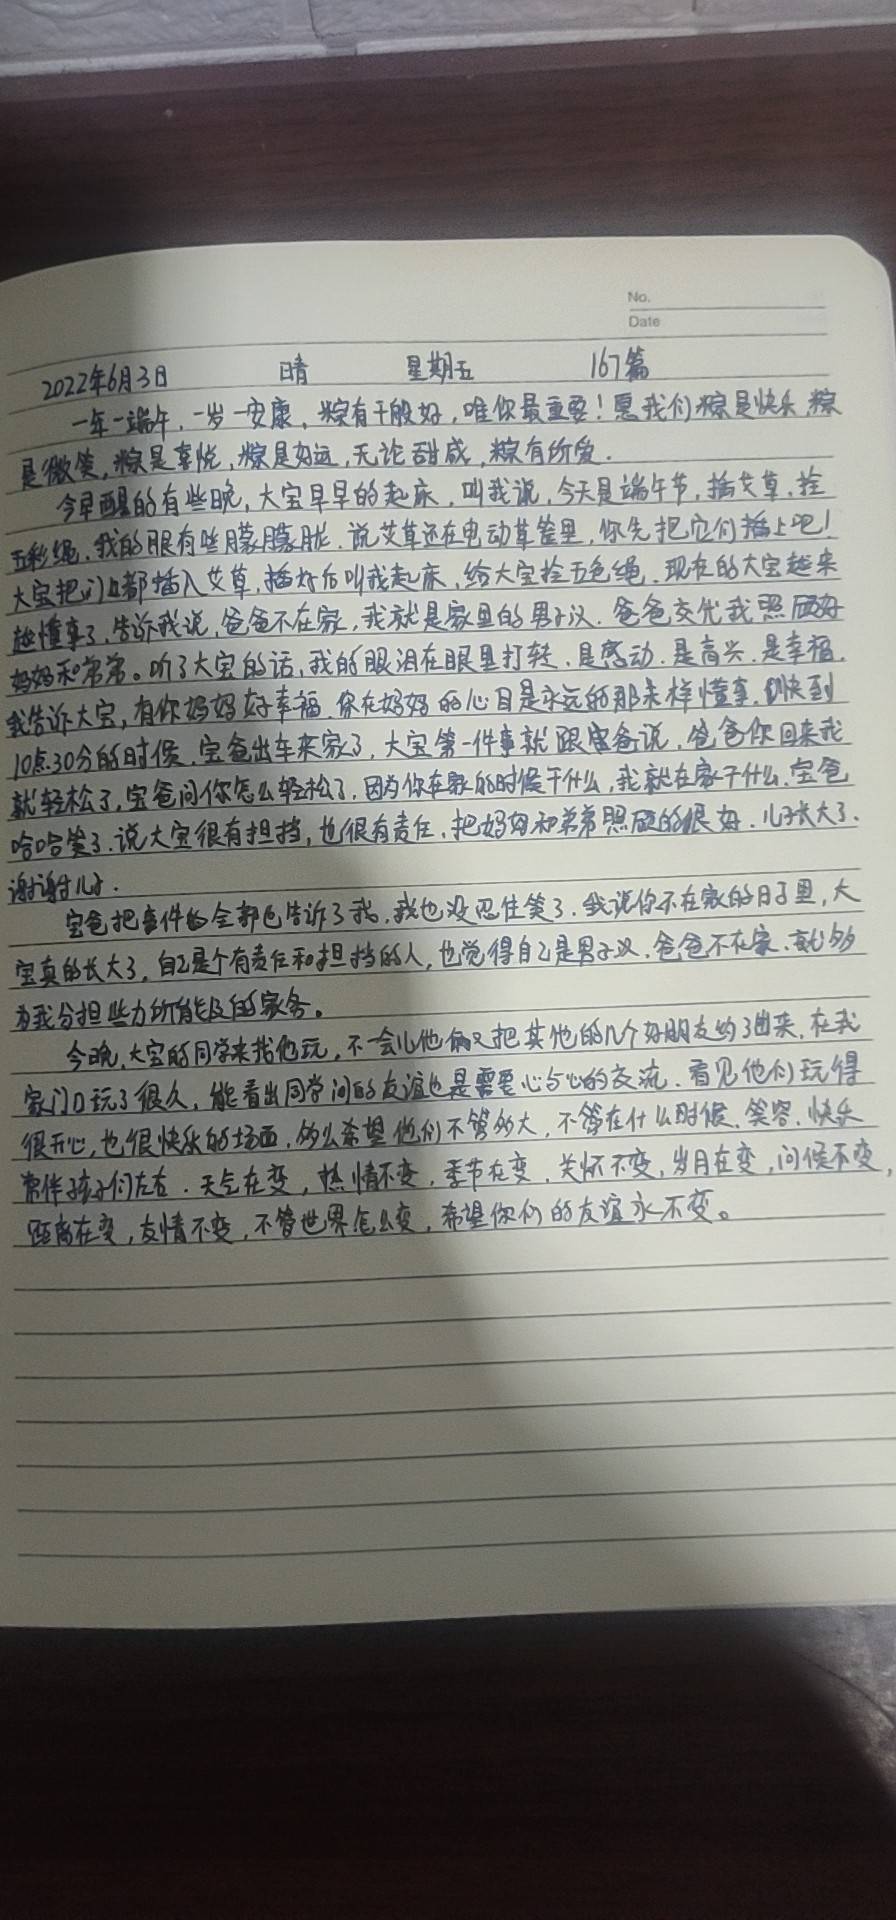 No.
Date
2022年6月3日 晴 星期五 167篇
一年一端午,一岁一安康,粽有千般好,唯你最重要!愿我们粽是快乐粽
是微笑,粽是喜悦,粽是好运,无论甜咸,粽有所爱.
今早醒的有些晚,大宝早早的起床,叫我说,今天是端午节,插艾草,拴
五彩绳,我的眼有些朦朦胧,说艾草还在电动车筐里,你先把它们插上吧!
大宝把门口都插入艾草,插好后叫我起床,给大宝拴五色绳.现在的大宝越来
越懂事了,告诉我说,爸爸不在家,我就是家里的男子汉.爸爸交代我照顾好
妈妈和弟弟。听了大宝的话,我的眼泪在眼里打转,是感动.是高兴.是幸福.
我告诉大宝,有你妈妈好幸福.你在妈妈的心目是永远的那来样懂事.到快到
10点30分的时候,宝爸出车来家了,大宝第一件事就跟宝爸说,爸爸你回来我
就轻松了,宝爸问你怎么轻松了,因为你在家的时候干什么,我就在家干什么.宝爸
哈哈笑了.说大宝很有担挡,也很有责任,把妈妈和弟弟照顾的很好.儿子长大了.
谢谢儿子.
宝爸把事件的全部也告诉了我,我也没忍住笑了.我说你不在家的日子里,大
宝真的长大了,自己是个有责任和担挡的人,也觉得自己是男子汉.爸爸不在家、就够
为我分担些力所能及的家务。
今晚,大宝的同学来找他玩,不一会儿他俩又把其他的几个好朋友约了出来,在我
家门口玩了很久,能看出同学间的友谊也是需要心与心的交流.看见他们玩得
很开心,也很快乐的场面,多么希望他们不管多大,不管在什么时候、笑容、快乐
常伴孩子们左右.天气在变,热情不变,季节在变,关怀不变,岁月在变,问候不变,
距离在变,友情不变,不管世界怎么变,希望你们的友谊永不变。